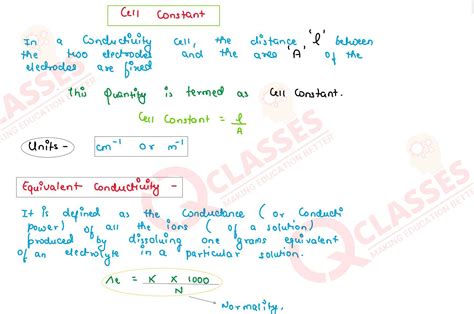 Cell Constant
In a Conductivity Cell, the distance 'l' between
the two electrodes and the area 'A' of the
electrodes are fixed
This Quantity is termed as Cell Constant.
Cell Constant = l/A
Units - cm⁻¹ or m⁻¹
Equivalent Conductivity -
It is defined as the Conductance ( or Conducti
power) of all the ions ( of a solution)
produced by dissolving one grams equivalent
of an electrolyte in a particular solution.
Λe = K X 1000 / N
Normality.
CLASSES
MAKING EDUCATION BETTER
QCLASSES
MAKING EDUCATION BETTER